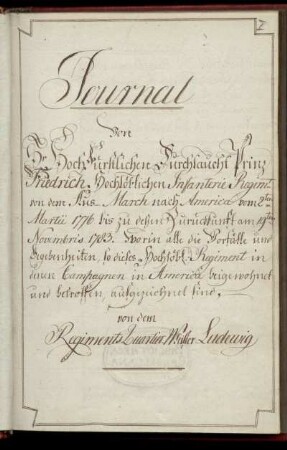 I
Journal
Von
Sr Hochfürstlichen Durchlaucht Prinz
Friedrich Hochlöblichen Infanterie Regiment
von dem Aus-March nach America vom 2ten
Martii 1776 bis zu deßen Zurückkunft am
Novembris 1783. Worin alle die Vorfälle und
Begebenheiten, so dieses Hochlöbl. Regiment in
denen Campagnen in America beigewohnet
und betroffen, aufgezeichnet sind.
von dem
Regiments Quartier Meister Ludewig